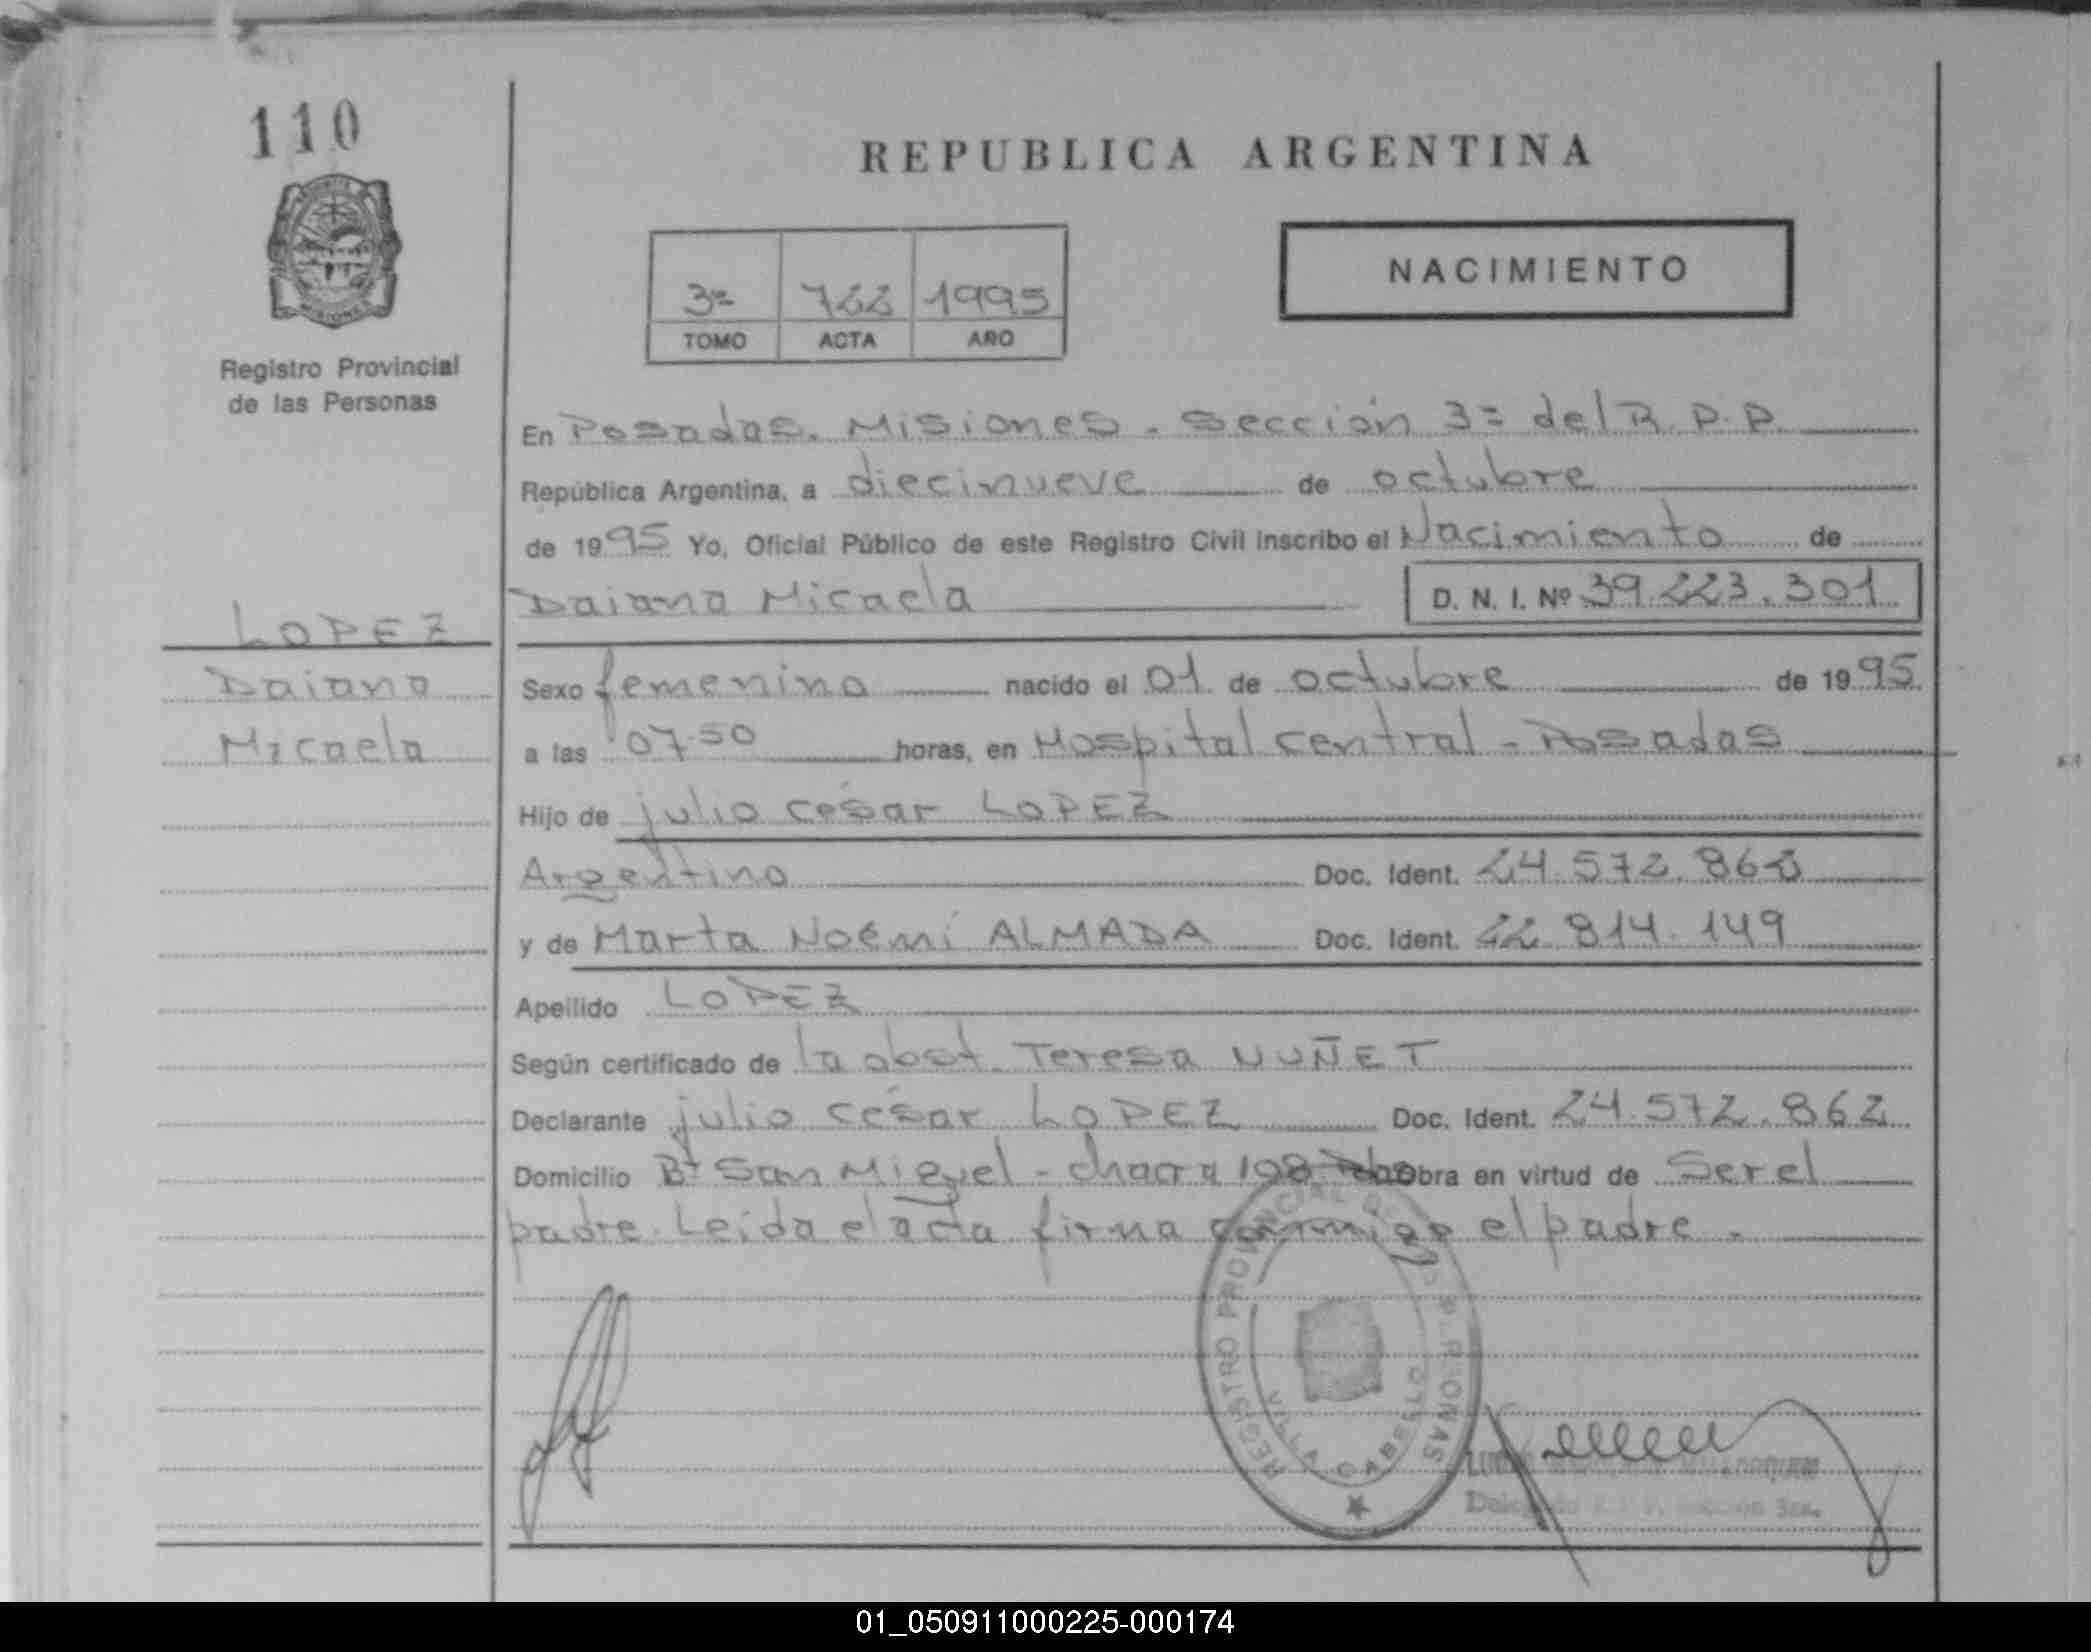 110
REPUBLICA ARGENTINA
NACIMIENTO
3ª 722 1995
TOMO ACTA AÑO
Registro Provincial
de las Personas
En Posadas. Misiones. Sección 3ª del R.P.P.
República Argentina, a diecinueve de octubre
de 1995 Yo, Oficial Público de este Registro Civil inscribo el Nacimiento de
Daiana Micaela D. N. I. Nº 39.223.301
LOPEZ
Daiana
Micaela
Sexo femenino nacido el 01 de octubre de 1995
a las 07.50 horas, en Hospital central - Posadas
Hijo de julio césar LOPEZ
Argentino Doc. Ident. 24.572.862
y de Marta Noémi ALMADA Doc. Ident. 22.814.149
Apellido LOPEZ
Según certificado de la obst. Teresa NUÑET
Declarante julio césar LOPEZ Doc. Ident. 24.572.862
Domicilio Bº San Miguel - chacra 198 Obra en virtud de Ser el
padre. Leida el acta firma conmigo el padre.
REGISTRO PROVINCIAL DE LAS PERSONAS
VILLA CABELLO
Delegado R.P.P. Sección 3ra.
01_050911000225-000174